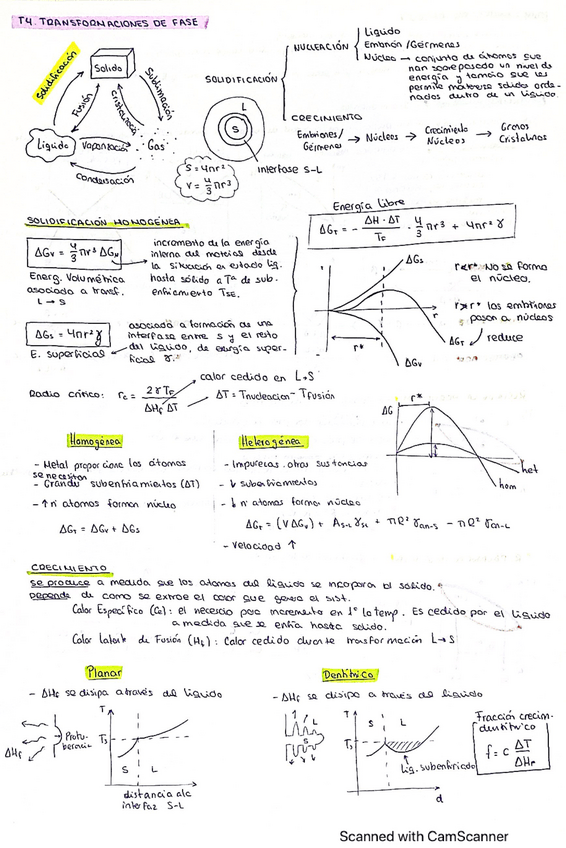 T4. TRANSFORMACIONES DE FASE
Solidificación
Solido
Fusión
Cristalización
Sublimación
Líquido
Vaporización
Gas
Condensación
SOLIDIFICACIÓN
NUCLEACIÓN
Líquido
Embrión/Gérmenes
Núcleo → conjunto de átomos que
han sobrepasado un nivel de
energía y tamaño que les
permite mantenerse sólidos orde-
nados dentro de un líquido.
CRECIMIENTO
Embriones/Gérmenes → Núcleos → Crecimiento Núcleos → Granos Cristalinos
L
S
interfase S-L
S = 4πr²
V = 4/3 πr³
SOLIDIFICACIÓN HOMOGÉNEA
ΔGv = 4/3 πr³ ΔGv
Energ. Volumétrica
asociada a transf.
L → S
incremento de la energía
interna del material desde
la situación en estado líq.
hasta sólido a Tª de sub.
enfriamiento TSE.
ΔGs = 4πr²γ
E. superficial
asociada a formación de una
interfase entre S y el resto
del líquido, de energía super-
ficial γ.
Energía Libre
ΔGT = - ΔH · ΔT / TF · 4/3 πr³ + 4πr²γ
ΔGs
r
ΔGT
ΔGv
r*
r<r* No se forma
el núcleo.
r>r* los embriones
pasan a núcleos
reduce
Radio crítico: rc = 2γTF / ΔHf ΔT
calor cedido en L→S
ΔT = Tnucleación - Tfusión
Homogénea
- Metal proporciona los átomos
se necesitan
- Grandes subenfriamientos (ΔT)
- ↑ nº átomos forman núcleo
ΔGT = ΔGv + ΔGs
Heterogénea
- Impurezas, otras sustancias
- ↓ subenfriamientos
- ↓ nº átomos forman núcleo
ΔGT = (VΔGv) + AS-L γSL + πR² γan-S - πR² γan-L
- velocidad ↑
ΔG
r*
het
hom
CRECIMIENTO
se produce a medida que los átomos del líquido se incorporan al sólido.
Depende de como se extrae el calor que genera el sist.
Calor Específico (Ce): el necesario para incrementar en 1º la temp. Es cedido por el líquido
a medida que se enfría hasta sólido.
Calor latente de Fusión (Hf): Calor cedido durante trasformación L→S
Planar
- ΔHf se disipa a través del líquido
ΔHf
Protu-
berancia
T
Ts
S
L
distancia a la
interfaz S-L
Dentítrico
- ΔHf se disipa a través del líquido
L
S
T
Ts
S
L
Líq. subenfriado
d
Fracción crecim.
dentítrico
f = c ΔT / ΔHf
Scanned with CamScanner